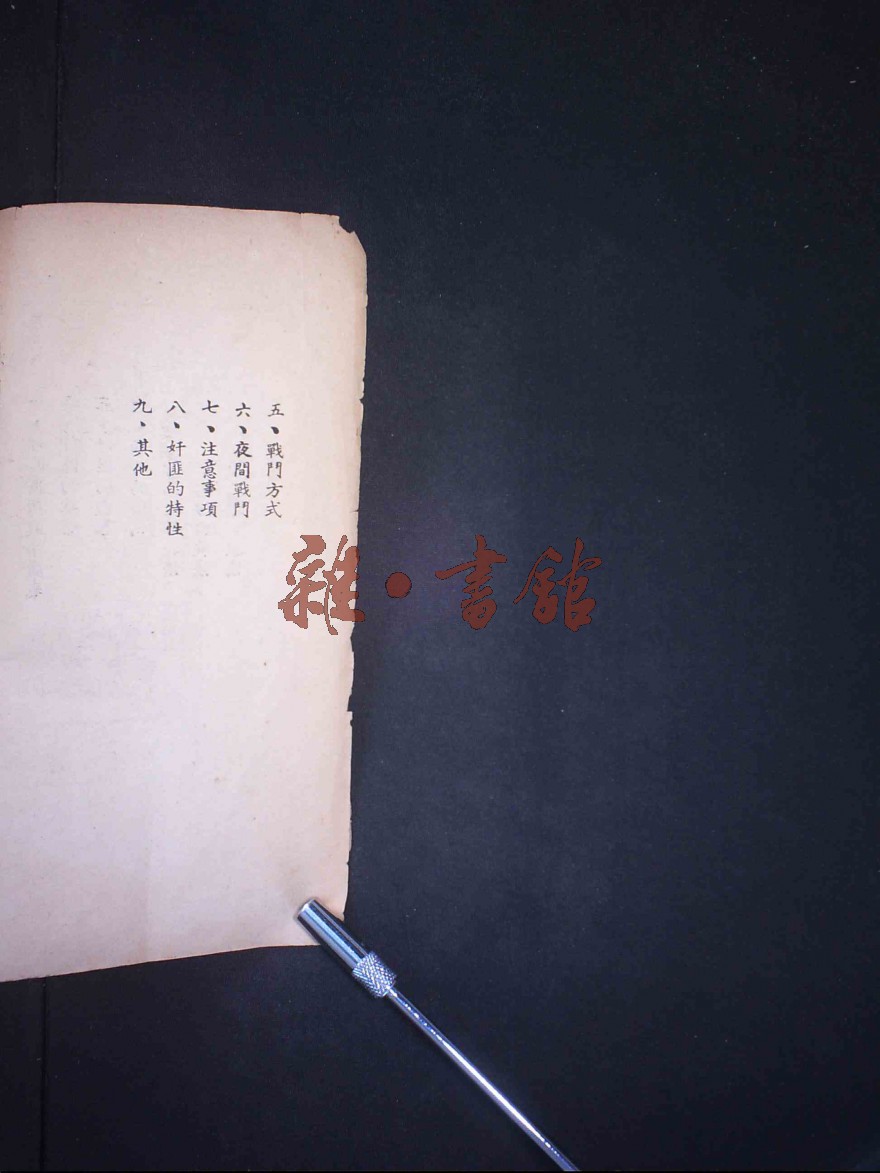 五、戰鬥方式
六、夜間戰鬥
七、注意事項
八、奸匪的特性
九、其他
雜·書館